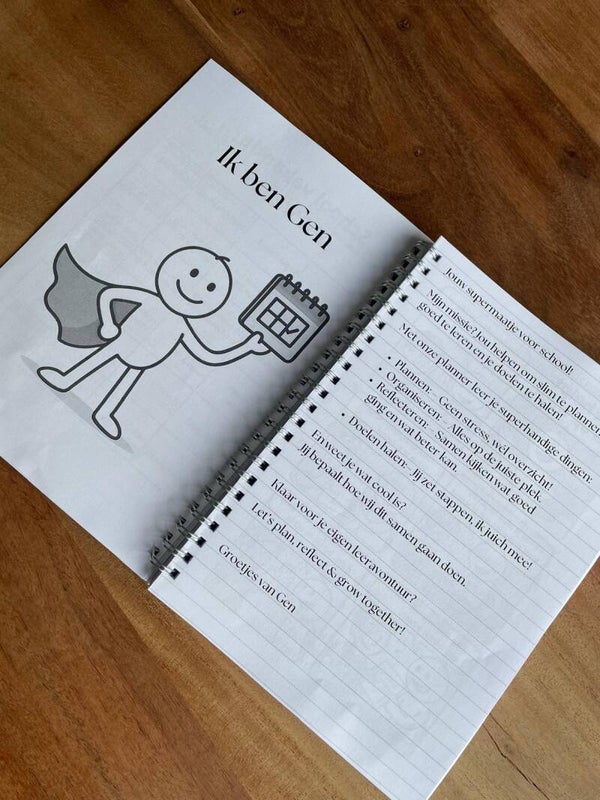 Ik ben Gen
Jouw supermaatje voor school!
Mijn missie? Jou helpen om slim te plannen,
goed te leren en je doelen te halen!
Met onze planner leer je superhandige dingen:
• Plannen:- Geen stress, wel overzicht!
• Organiseren:- Alles op de juiste plek.
• Reflecteren: - Samen kijken wat goed
ging en wat beter kan.
• Doelen halen:- Jij zet stappen, ik juich mee!
En weet je wat cool is?
Jij bepaalt hoe wij dit samen gaan doen.
Klaar voor je eigen leeravontuur?
Let's plan, reflect & grow together!
Groetjes van Gen